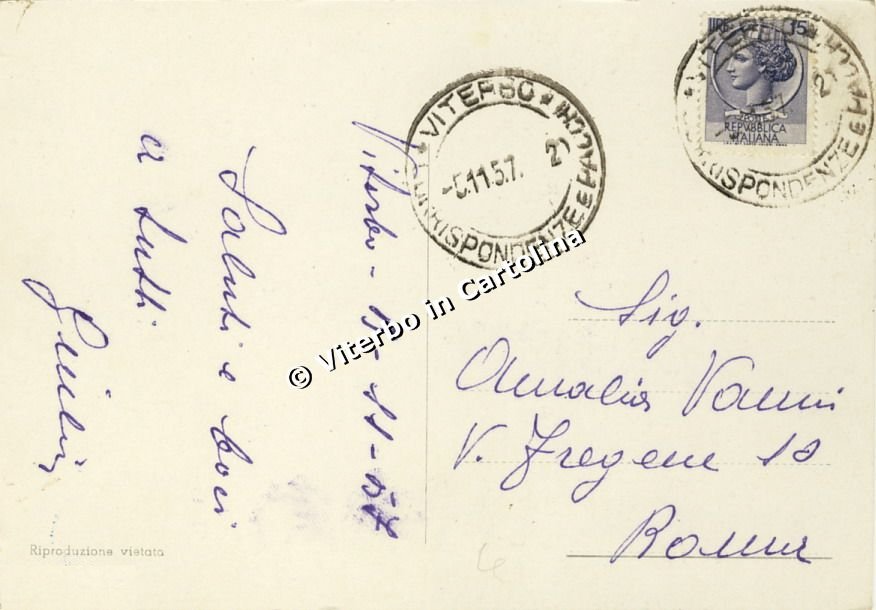 Viterbo - 5 - 11 - 57
Saluti e baci
a tutti
VITERBO
CORRISPONDENZE E PACCHI
-5.11.57. 21
LIRE 15
REPVBBLICA
ITALIANA
VITERBO
CORRISPONDENZE E PACCHI
21
Sig.
Amalia Vanni
V. Fregene 10
Roma
© Viterbo in Cartolina
Riproduzione vietata